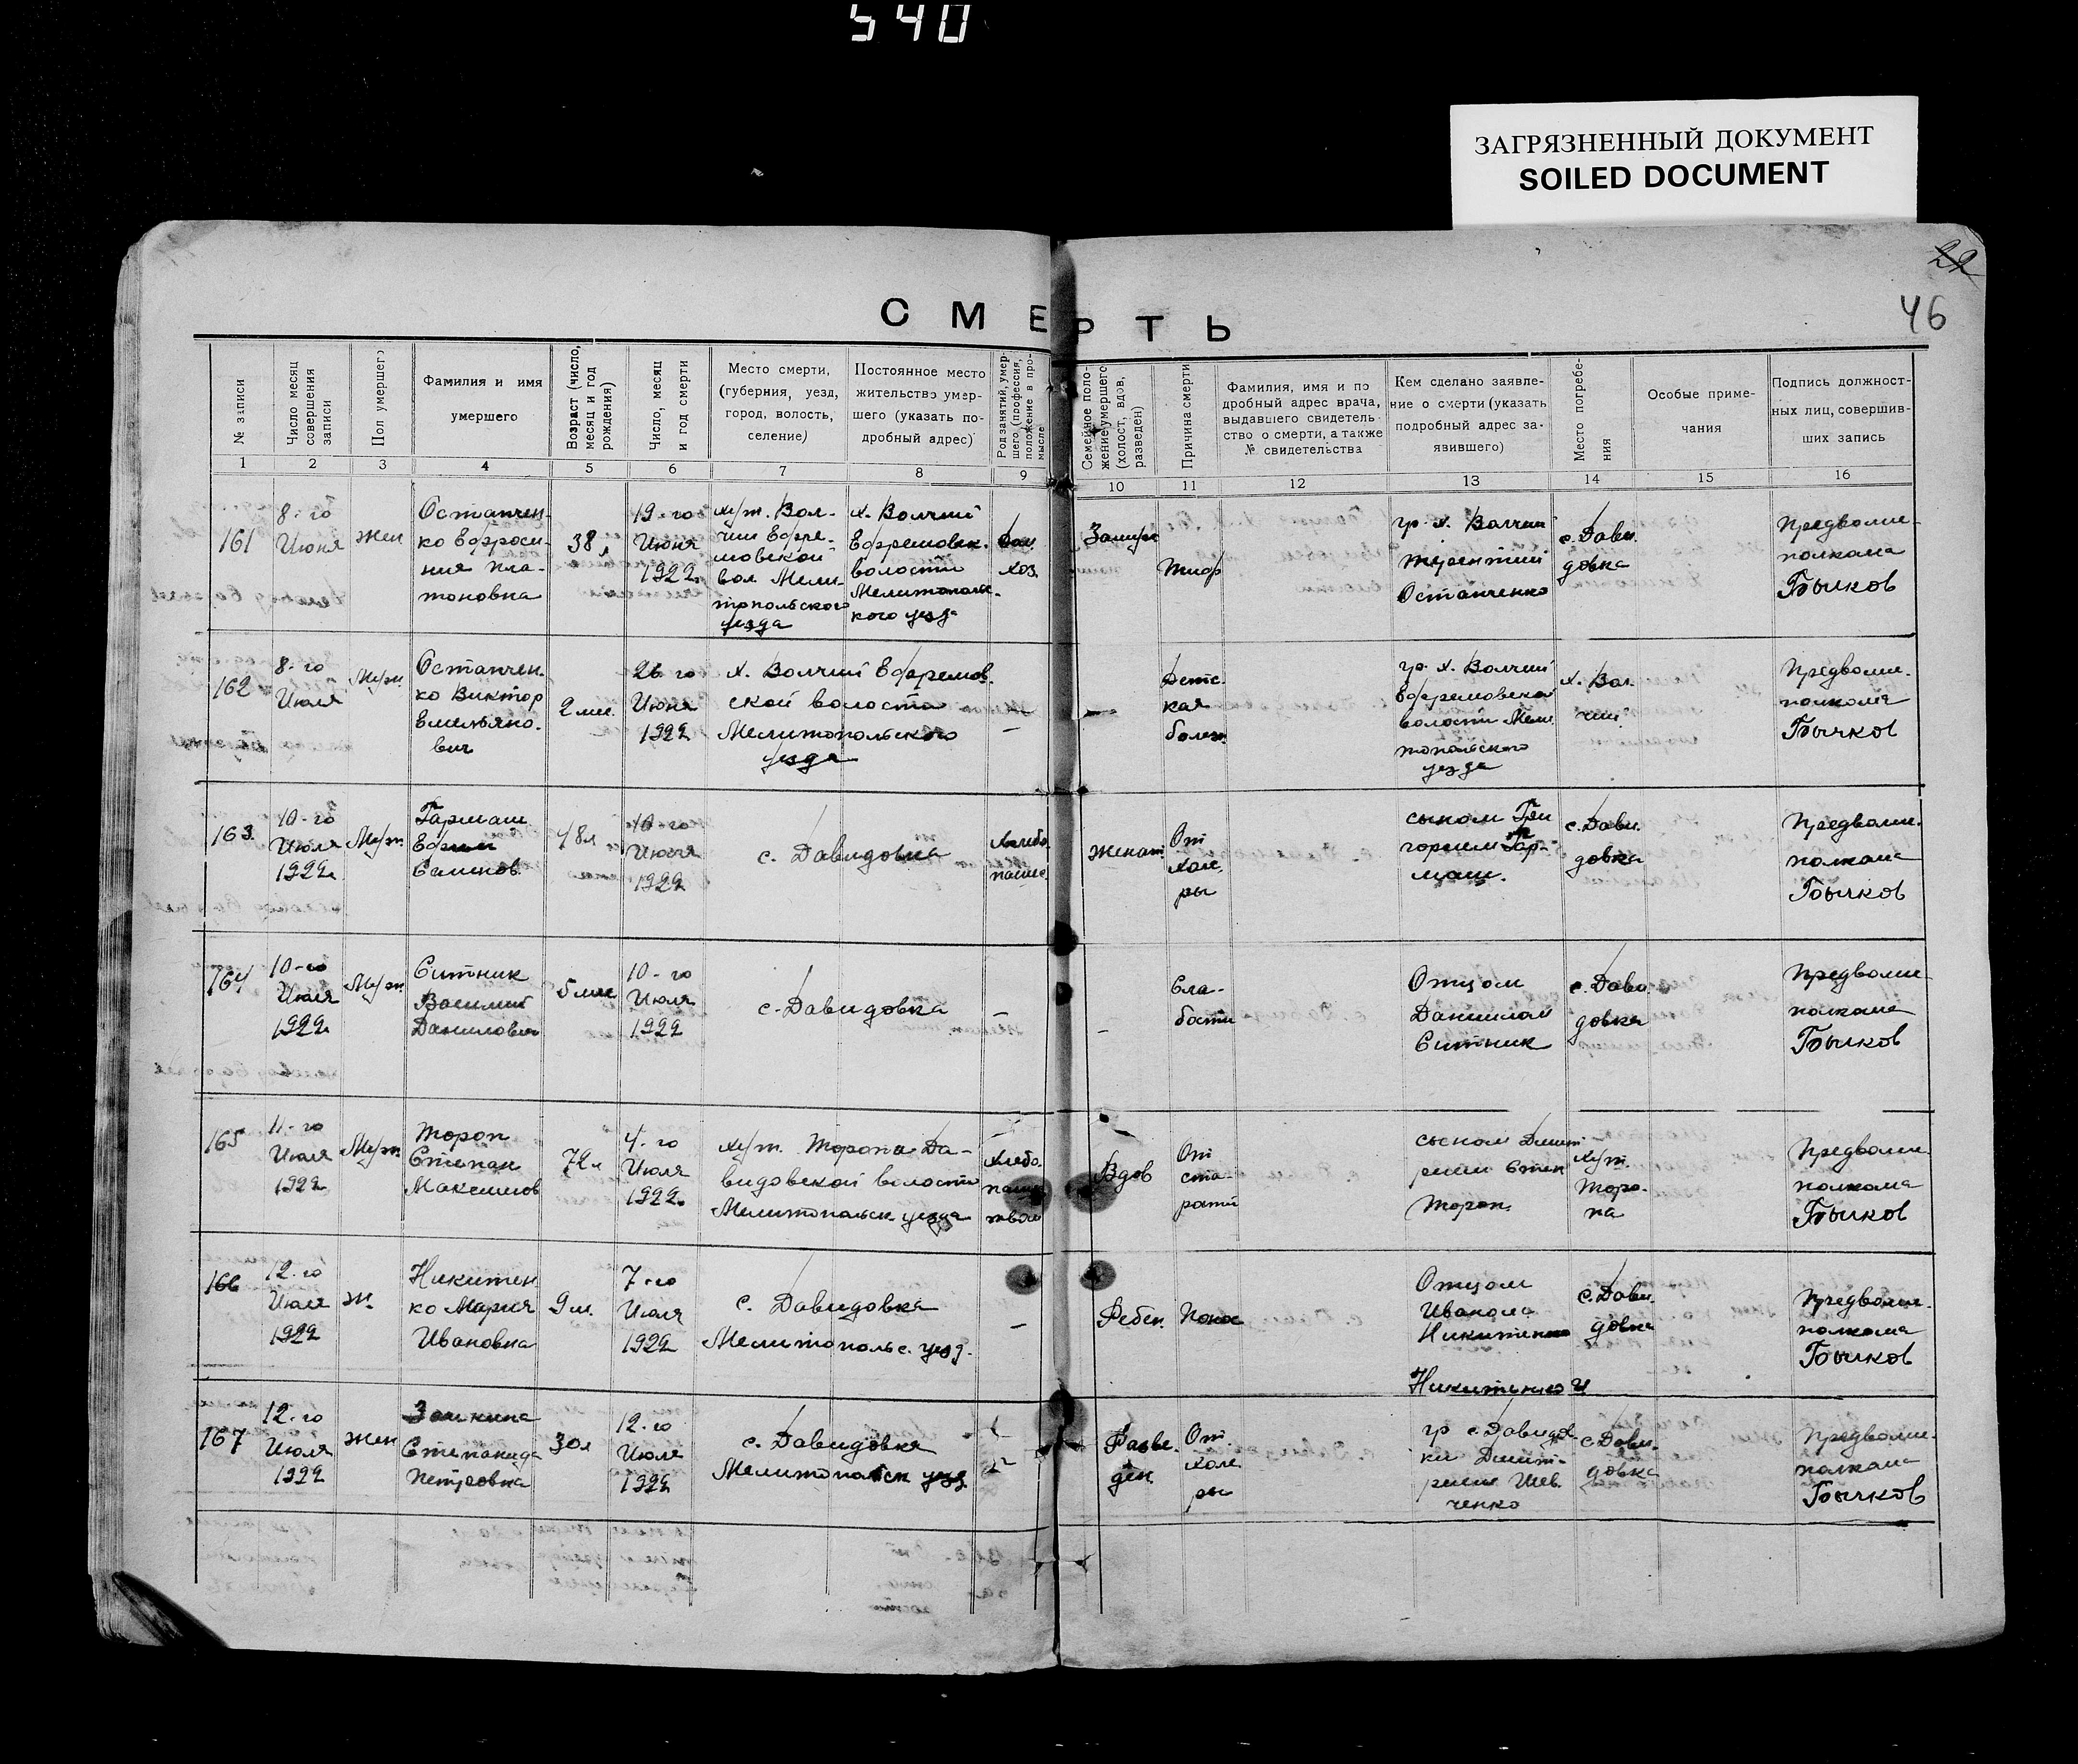 540
ЗАГРЯЗНЕННЫЙ ДОКУМЕНТ
SOILED DOCUMENT
22
46
СМЕРТЬ
№ записи
Число месяц совершения записи
Пол умершего
Фамилия и имя умершего
Возраст (число, месяц и год рождения)
Число, месяц и год смерти
Место смерти, (губерния, уезд, город, волость, селение)
Постоянное место жительство умершего (указать подробный адрес)
Род занятий, умершего (профессия, положение в промысле
Семейное положение умершего (холост, вдов, разведен)
Причина смерти
Фамилия, имя и подробный адрес врача, выдавшего свидетельство о смерти, а также № свидетельства
Кем сделано заявление о смерти (указать подробный адрес заявившего)
Место погребения
Особые примечания
Подпись должностных лиц, совершивших запись
1 2 3 4 5 6 7 8 9 10 11 12 13 14 15 16
161
8-го
Июня
жен
Остапчен-
ко Ефроси-
ния Пла-
тоновна
38 л
19-го
Июня
1922
хут. Вол-
чий Ефре-
мовской
вол Мели-
топольского
уезда
х. Волчий
Ефремовск.
волости
Мелитополь-
кого уезд
дом.
хоз.
Замуж
Тиф
гр. х. Волчий
Терентий
Остапченко
с. Дави-
довка
Предволис-
полкома
Бычков
162
8-го
Июля
Муж.
Остапчен-
ко Виктор
Емельяно-
вич
2 мес.
26 го
Июня
1922
х. Волчий Ефремов-
ской волости
Мелитопольского
уезда
Детс-
кая
болезн.
гр. х. Волчий
Ефремовской
волости Мели-
топольского
уезда
х. Вол-
чий
Предволис-
полкома
Бычков
163
10-го
Июля
1922
Муж.
Гармаш
Ефим
48 л
10-го
Июля
1922
с. Давидовка
Хлебо-
пашес
женат
От
холе-
ры
сыном Гри
горием Гар-
маш.
с. Дави-
довка
Предволис-
полкома
Бычков
164
10-го
Июля
1922
Муж.
Ситник
Василий
Данилович
5 мес
10-го
Июля
1922
с. Давидовка
Сла-
бости
Отцом
Данилом
Ситник
с. Дави-
довка
Предволис-
полкома
Бычков
165
11-го
Июля
1922
Муж.
Тороп
Степан
Максимов
72 л
4-го
Июля
1922
хут. Торопа Да-
видовской волости
Мелитопольск уезда
Хлебо-
паше
ством
Вдов
От
ста-
рости
сыном Дмит
рием Степ
Тороп
хут.
Торо-
па
Предволис-
полкома
Бычков
166
12-го
Июля
1922
ж.
Никитен-
ко Мария
Ивановна
9 м.
7-го
Июля
1922
с. Давидовка
Мелитопольс. уезд.
Ребен.
Понос
Отцом
Иваном
Никитенко
Никитенко И
с. Дави-
довка
Предволис-
полкома
Бычков
167
12-го
Июля
1922
жен
Степанида
Петровна
30 л
12-го
Июля
1922
с. Давидовка
Мелитопольск уезд.
Разве-
ден.
От
холе
ры
гр с. Давидов-
ки Дмит-
рием Шев-
ченко
с. Дави-
довка
Предволис-
полкома
Бычков